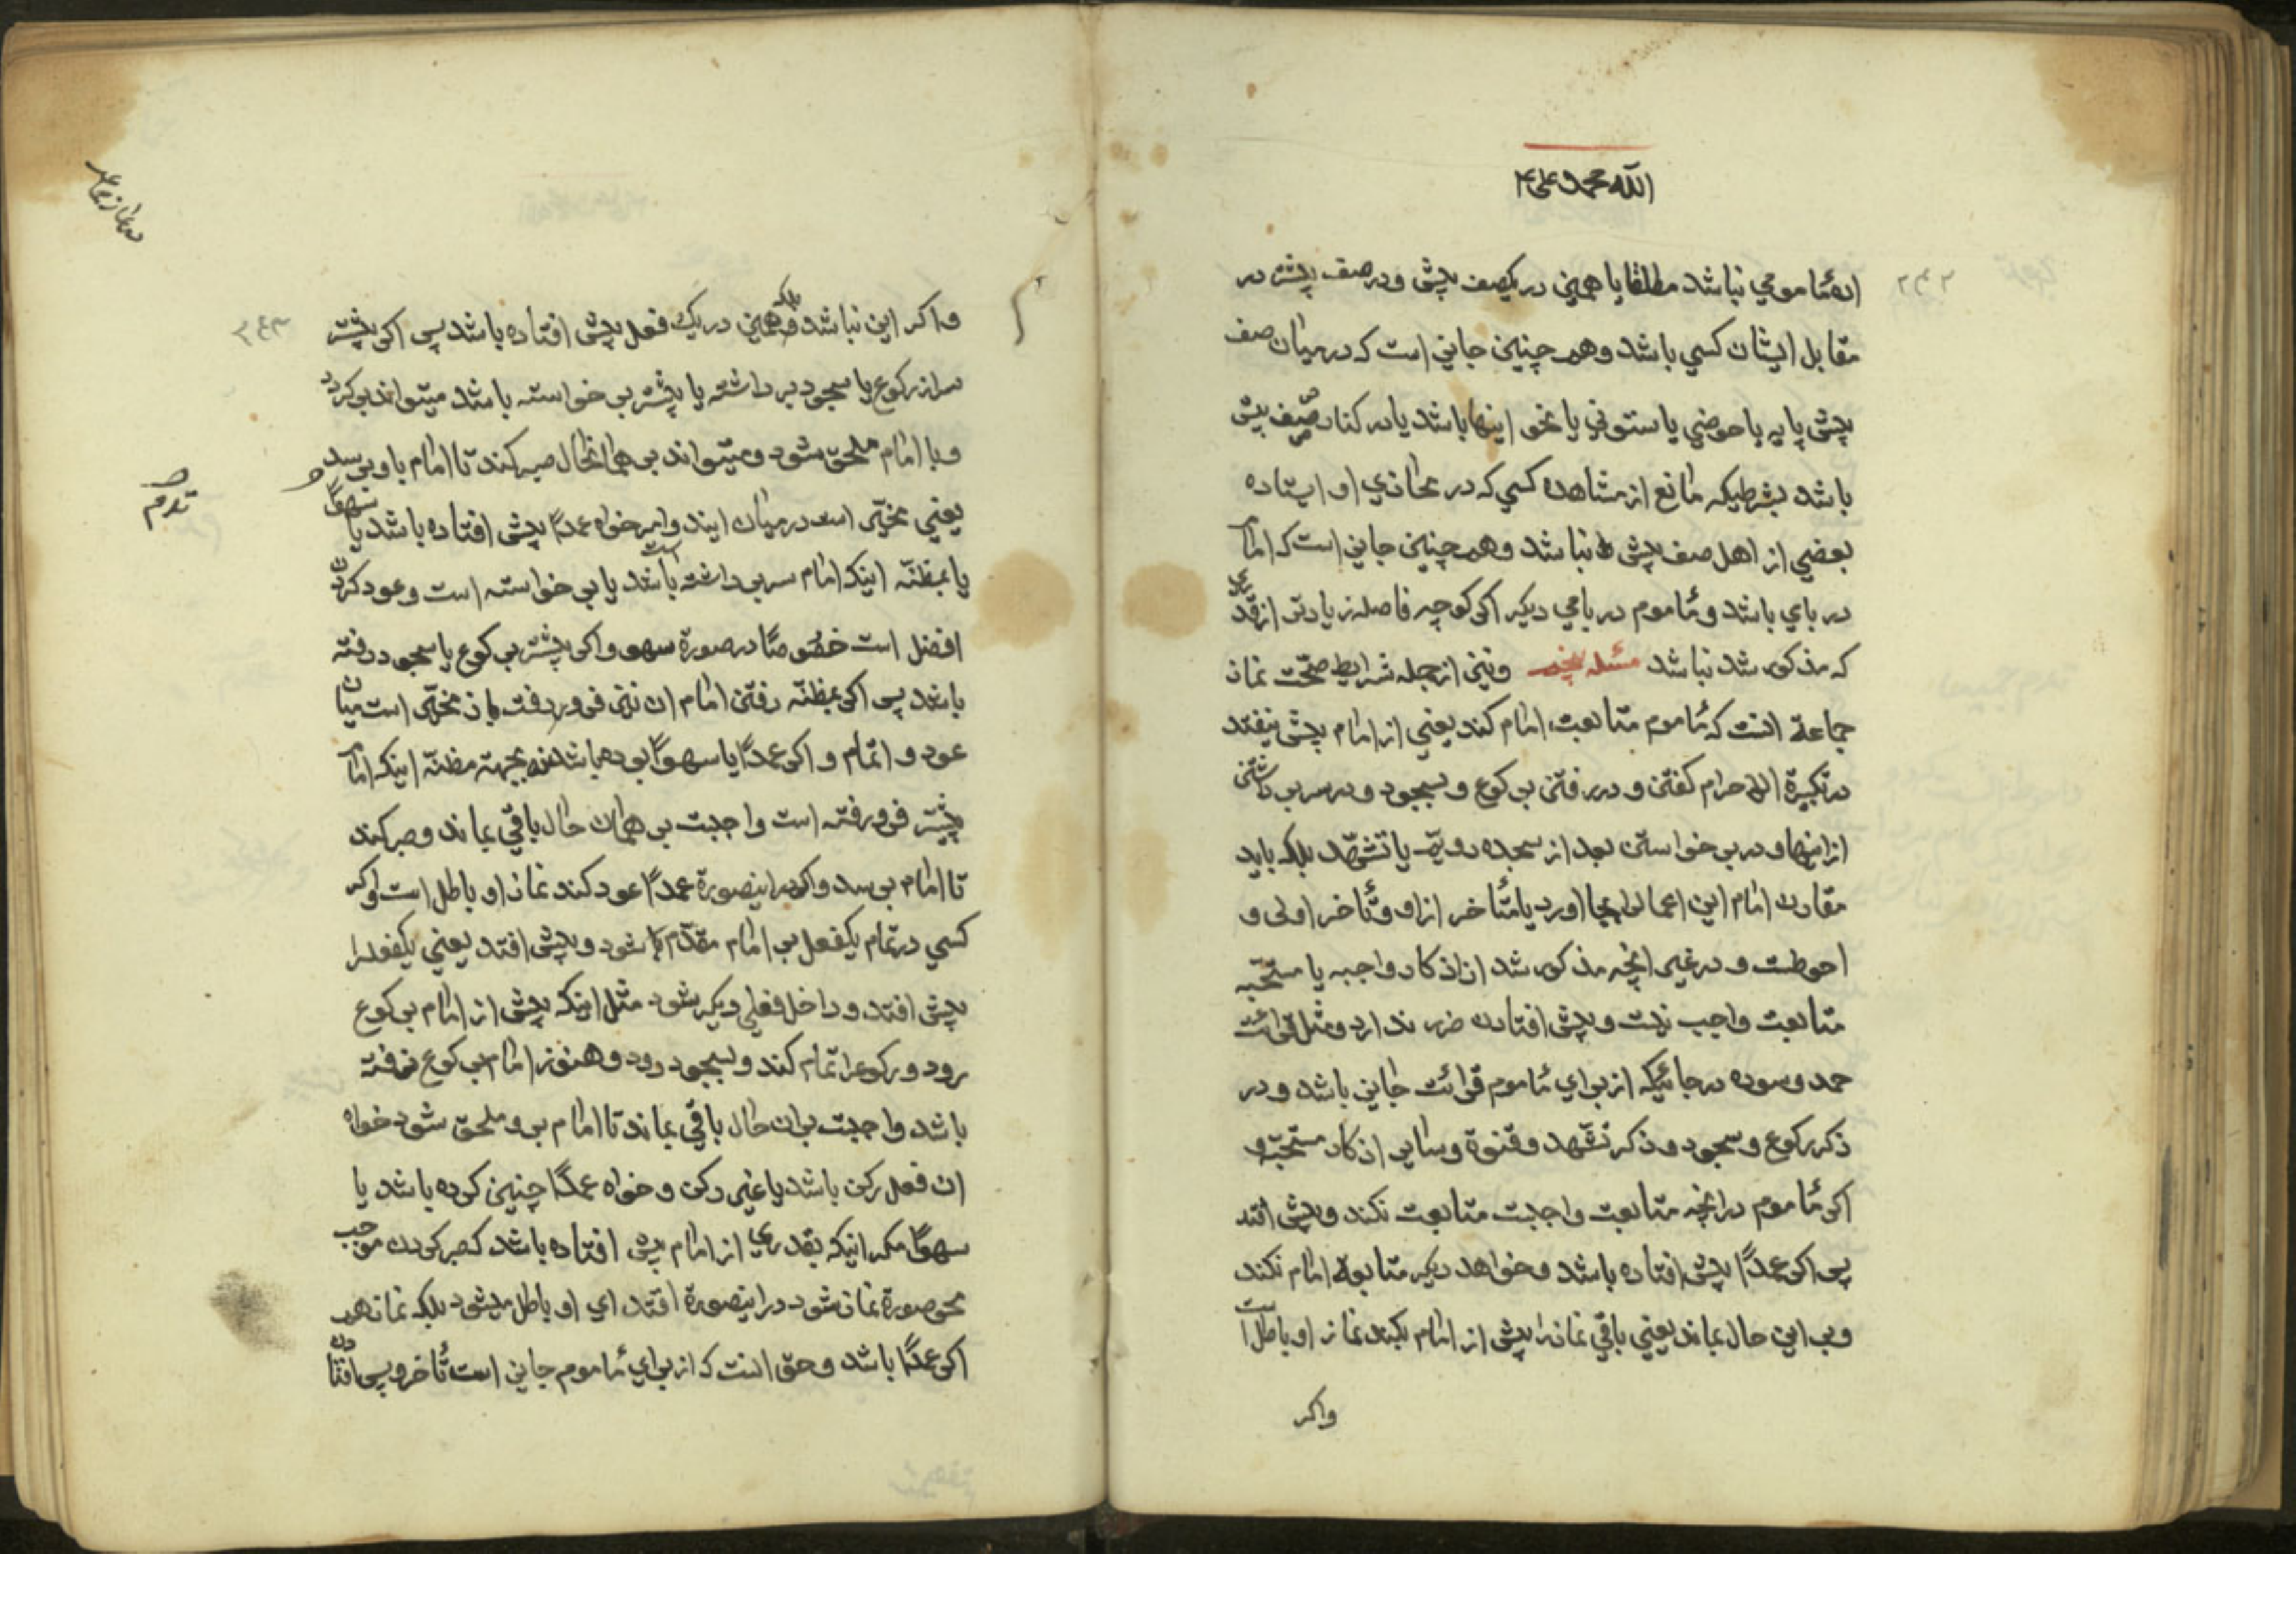 الله محمد و علی
۲۴۲
ان مأمومي نباشد مطلقا یا همین در یکصف پیش و در صف پیشتر در
مقابل ایشان کسی باشد و همچنین جایز است که در میان صف
پیش پایه یا حوضی یا ستونی یا نحو اینها باشد یا در کنار صف پیش
باشد بشرطیکه مانع از مشاهده کسی که در محاذي او ایستاده
بعضي از اهل صف پیش نباشد و همچنین جایز است که امام
در بامي باشد و مأموم در بامي دیکر اکر کوچه فاصله زیادتر از قدری
که مذکور شد نباشد مسئله پنجم و نیز از جمله شرایط صحّت نماز
جماعة انست که مأموم متابعت امام کند یعني از امام پیش نیفتد
در تکبیرة الاحرام کفتن و در رفتن برکوع و بسجود و در سر برداشتن
از اینها و در برخواستن بعد از سجده دویّم یا تشهّد بلکه باید
مقارن امام این اعمال را بجا اورد یا متأخر از او و تأخر اولی و
احوطست و در غیر انچه مذکور شد از اذکار واجبه یا مستحبّه
متابعت واجب نیست و پیش افتادن ضرر ندارد و مثل قرائت
حمد و سوره در جائیکه از برای مأموم قرائت جایز باشد و در
ذکر رکوع و سجود و ذکر تشهّد و قنوة و سایر اذکار مستحبّه و
اکر مأموم در انچه متابعت واجبست متابعت نکند و پیش افتد
پس اکر عمداً پیش افتاده باشد و خواهد دیکر متابعة امام نکند
و بر این حال بماند یعني باقي نماز را پیش از امام بکند نماز او باطل است
واکر
۲۴۳
واکر این نباشد بلکه همین در یک فعل پیش افتاده باشد پس اکر پیشتر
سر از رکوع یا سجود برداشته یا پیشتر برخواسته باشد میتواند برکردد
و با امام ملحق شود و میتواند بر همانحال صبر کند تا امام باو برسد
یعني مخیّر است در میان ایندو امر خواه عمداً پیش افتاده باشد یا سهواً
یا بمظنّه اینکه امام سر برداشته است باشد یا برخواسته است و عود کردن
افضل است خصوصًا در صورة سهو واکر پیشتر برکوع یا سجود رفته
باشد پس اکر بمظنّه رفتن امام ان نیز فرو رفت باز مخیّر است میان
عود و اتمام و اکر عمداً یا سهواً بوده باشد نه بجهة مظنّه اینکه امام
پیشتر فرو رفته است واجبست بر همان حال باقي بماند و صبر کند
تا امام برسد واکر در اینصورة عمداً عود کند نماز او باطل است و اکر
کسي در تمام یکفعل بر امام مقدّم شود و پیش افتد یعني یکفعلرا
پیش افتد و داخل فعلي دیکر شود مثل اینکه پیش از امام برکوع
رود و رکوع را تمام کند و بسجود رود و هنوز امام برکوع نرفته
باشد واجبست بر ان حال باقي بماند تا امام بر او ملحق شود خواه
ان فعل رکن باشد یا غیر رکن و خواه عمداً چنین کرده باشد یا
سهواً مکر اینکه بقدري از امام پیش افتاده باشد که صبر کردن موجب
محو صورة نماز شود در اینصورة اقتداي او باطل میشود بلکه نماز هم
اکر عمداً باشد و حق انست که از براي مأموم جایز است تأخر و پس افتادن